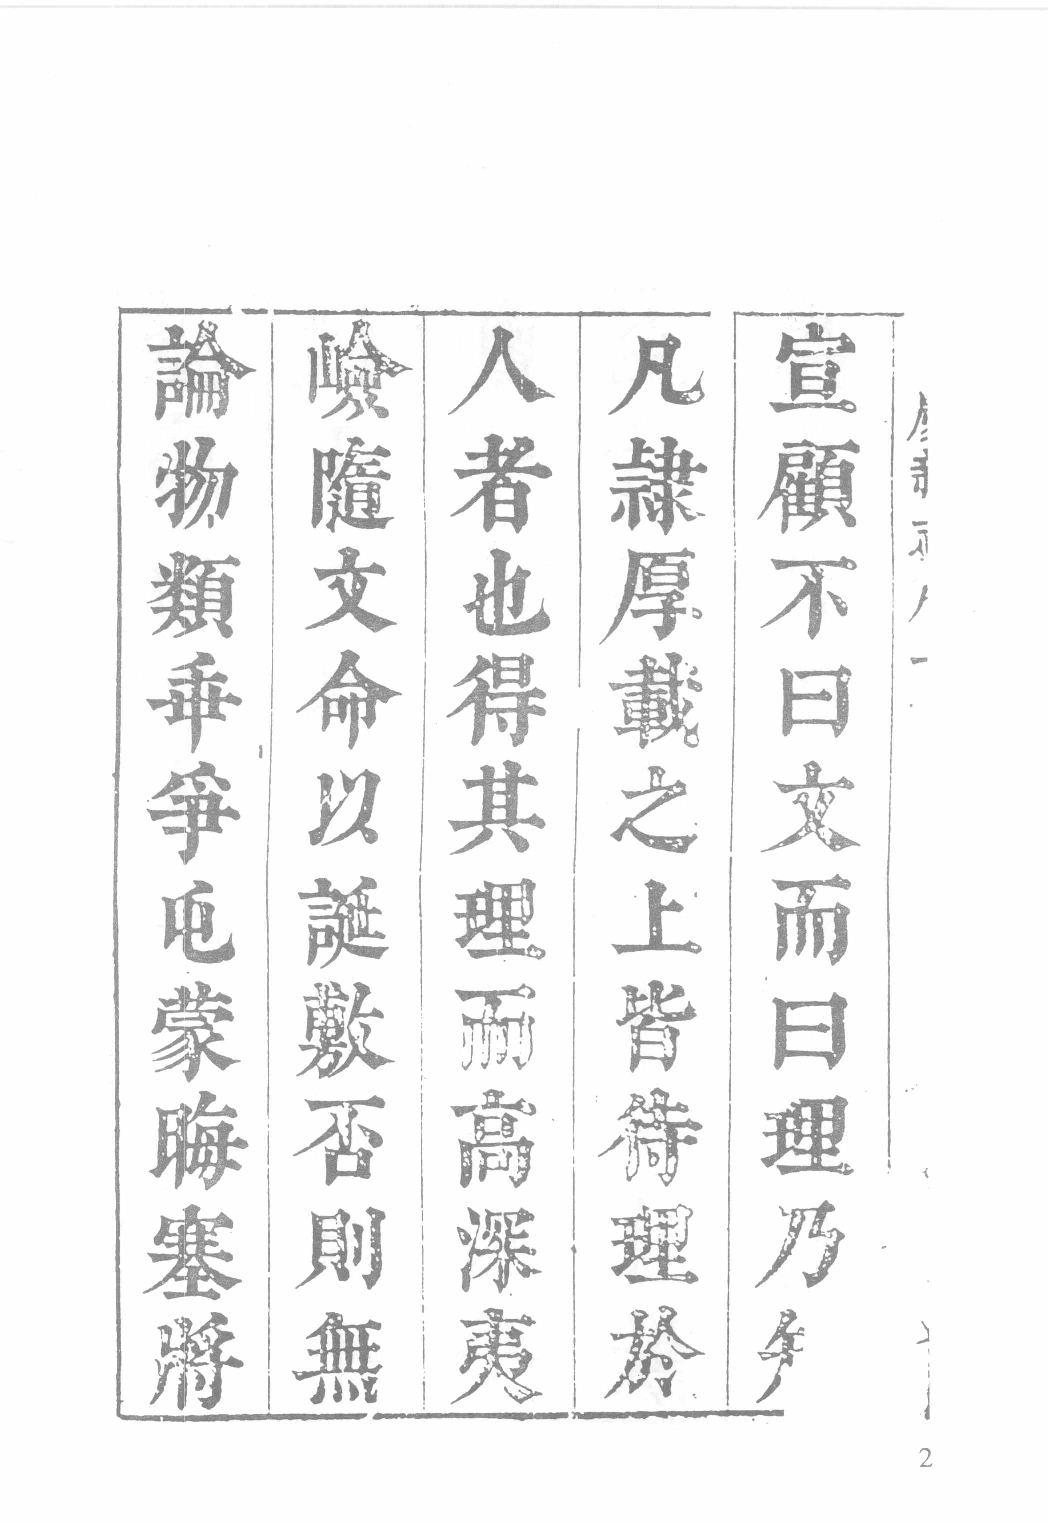 宣顧不曰文而曰理乃
凡隷厚載之上皆待理於
人者也得其理而高深夷
嶮隨文命以誕敷否則無
論物類乖爭屯蒙晦塞將
2